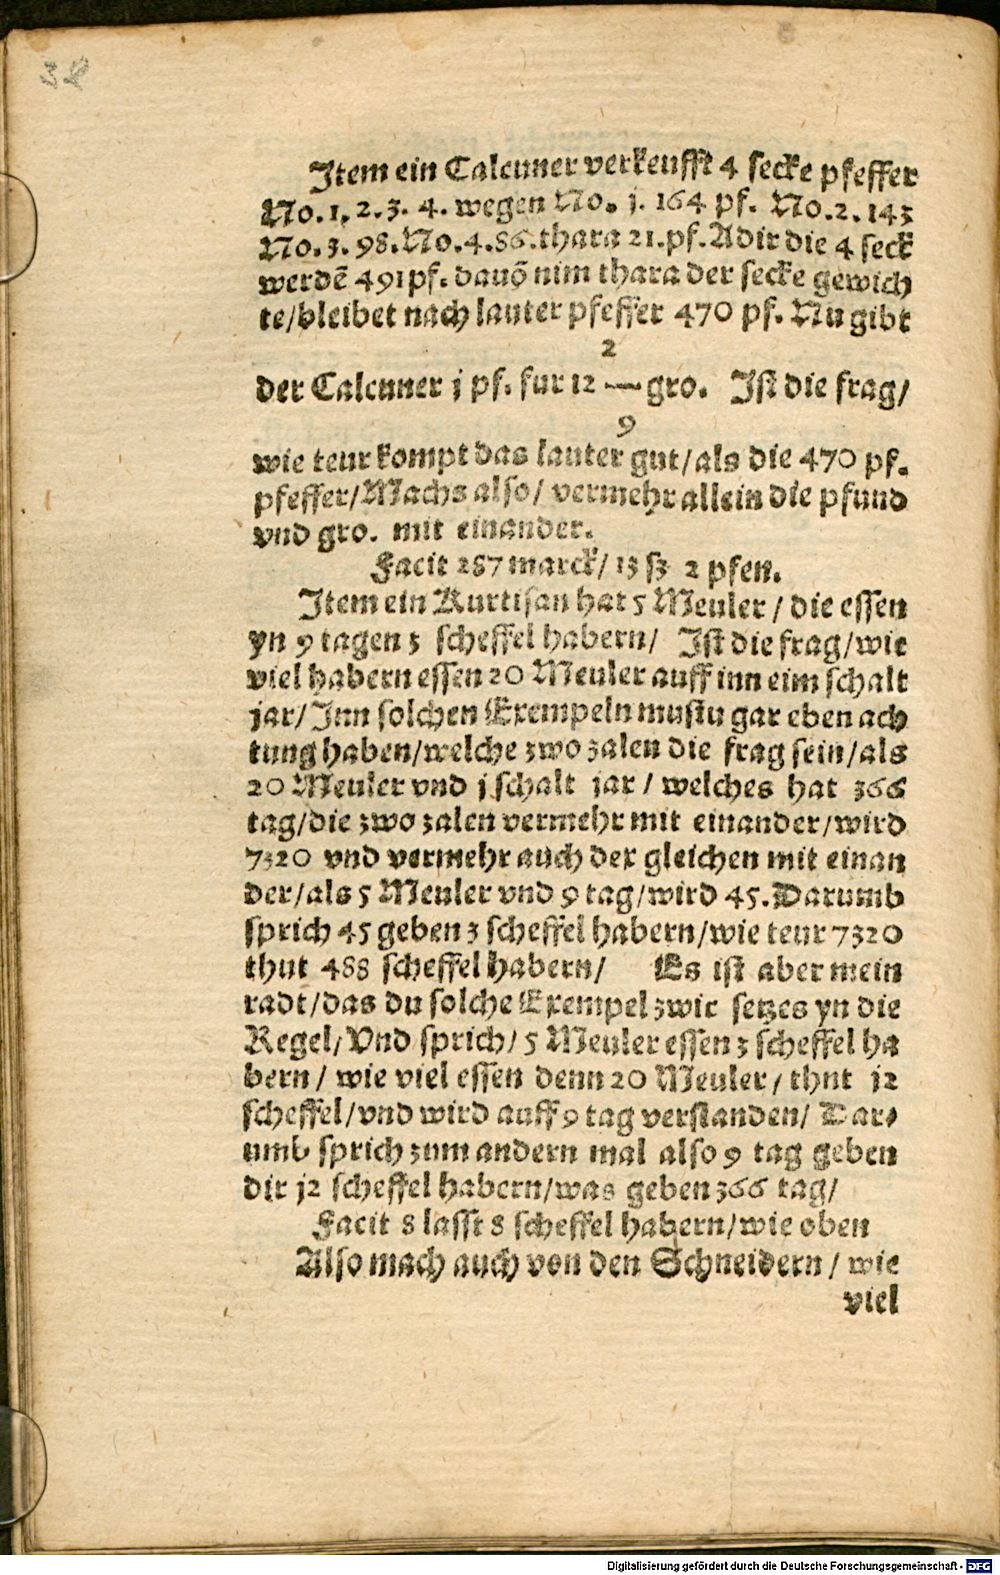 32
Item ein Calcuner verkeufft 4 secke pfeffer
No. 1. 2. 3. 4. wegen No. j. 164 pf. No. 2. 143
No. 3. 98. No. 4. 86. thara 21. pf. Adir die 4 seck
werdē 491 pf. dauõ nim thara der secke gewich
te/bleibet nach lauter pfeffer 470 pf. Nu gibt
2
der Calcuner j pf. fur 12 — gro. Ist die frag/
9
wie teur kompt das lauter gut/als die 470 pf.
pfeffer/Machs also/ vermehr allein die pfund
vnd gro. mit einander.
Facit 287 marck/ 13 ſʒ 2 pfen.
Item ein Kurtisan hat 5 Meuler / die essen
yn 9 tagen 3 scheffel habern/ Ist die frag/wie
viel habern essen 20 Meuler auff inn eim schalt
jar/ Inn solchen Exempeln mustu gar eben ach
tung haben/welche zwo zalen die frag sein/als
20 Meuler vnd j schalt jar / welches hat 366
tag/die zwo zalen vermehr mit einander/wird
7320 vnd vermehr auch der gleichen mit einan
der/als 5 Meuler vnd 9 tag/wird 45. Darumb
sprich 45 geben 3 scheffel habern/wie teur 7320
thut 488 scheffel habern/ Es ist aber mein
radt/das du solche Exempel zwir setzes yn die
Regel/ Vnd sprich/ 5 Meuler essen 3 scheffel ha
bern / wie viel essen denn 20 Meuler/ thut j2
scheffel/vnd wird auff 9 tag verstanden/ Dar⸗
umb sprich zum andern mal also 9 tag geben
dir j2 scheffel habern/was geben 366 tag/
Facit 8 lasst 8 scheffel habern/wie oben
Also mach auch von den Schneidern / wie
viel
Digitalisierung gefördert durch die Deutsche Forschungsgemeinschaft - DFG